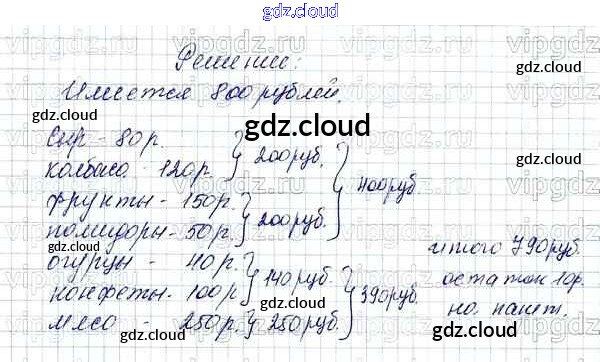 gdz.cloud
Решение:
Имеется 800 рублей.
Сыр - 80 р.
колбаса 120 р. } 200 руб.
фрукты - 150 р.
помидоры - 50 р. } 200 руб. } 400 руб
огурцы - 40 р.
конфеты - 100 р } 140 руб.
мясо - 250 р. } 250 руб. } 390 руб.
итого 790 руб.
остаток 10 р.
на пакет.
gdz.cloud
gdz.cloud
gdz.cloud
gdz.cloud
gdz.cloud
gdz.cloud
gdz.cloud
gdz.cloud
gdz.cloud
gdz.cloud